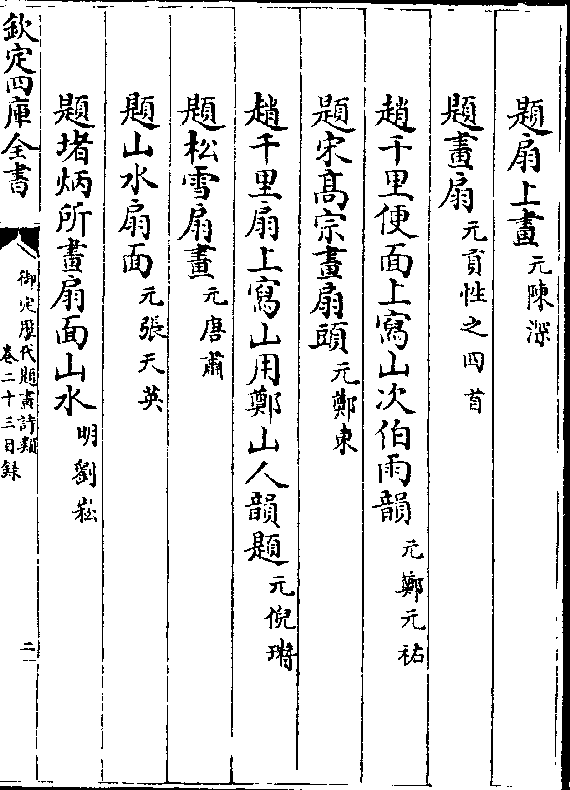 題扇上畫元陳深
題畫扇元貢性之四首
趙千里便面上寫山次伯雨韻元鄭元祐
題宋髙宗畫扇頭元鄭東
趙千里扇上寫山用鄭山人韻題元倪瓚
題松雪扇畫元唐肅
題山水扇面元張天英
題堵炳所畫扇面山水明劉崧
欽定四庫全書
御定歴代題畫詩類
卷二十三目録
二